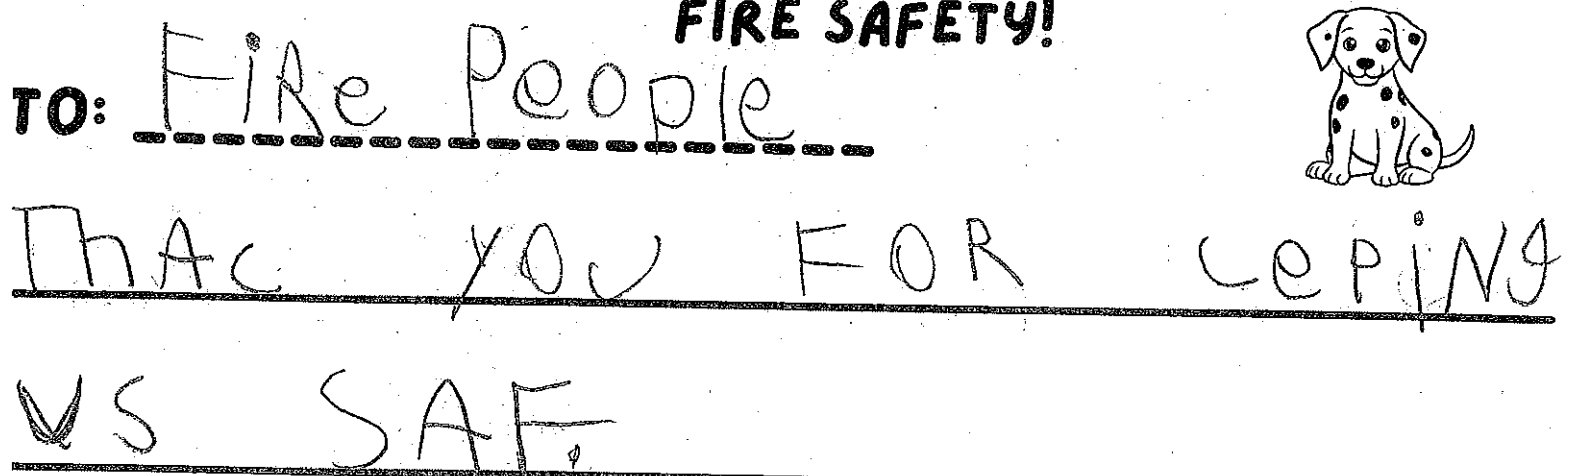 FIRE SAFETY!
TO: FiRe PeOple
ThAc YOU FOR cePiNg
US SAF.